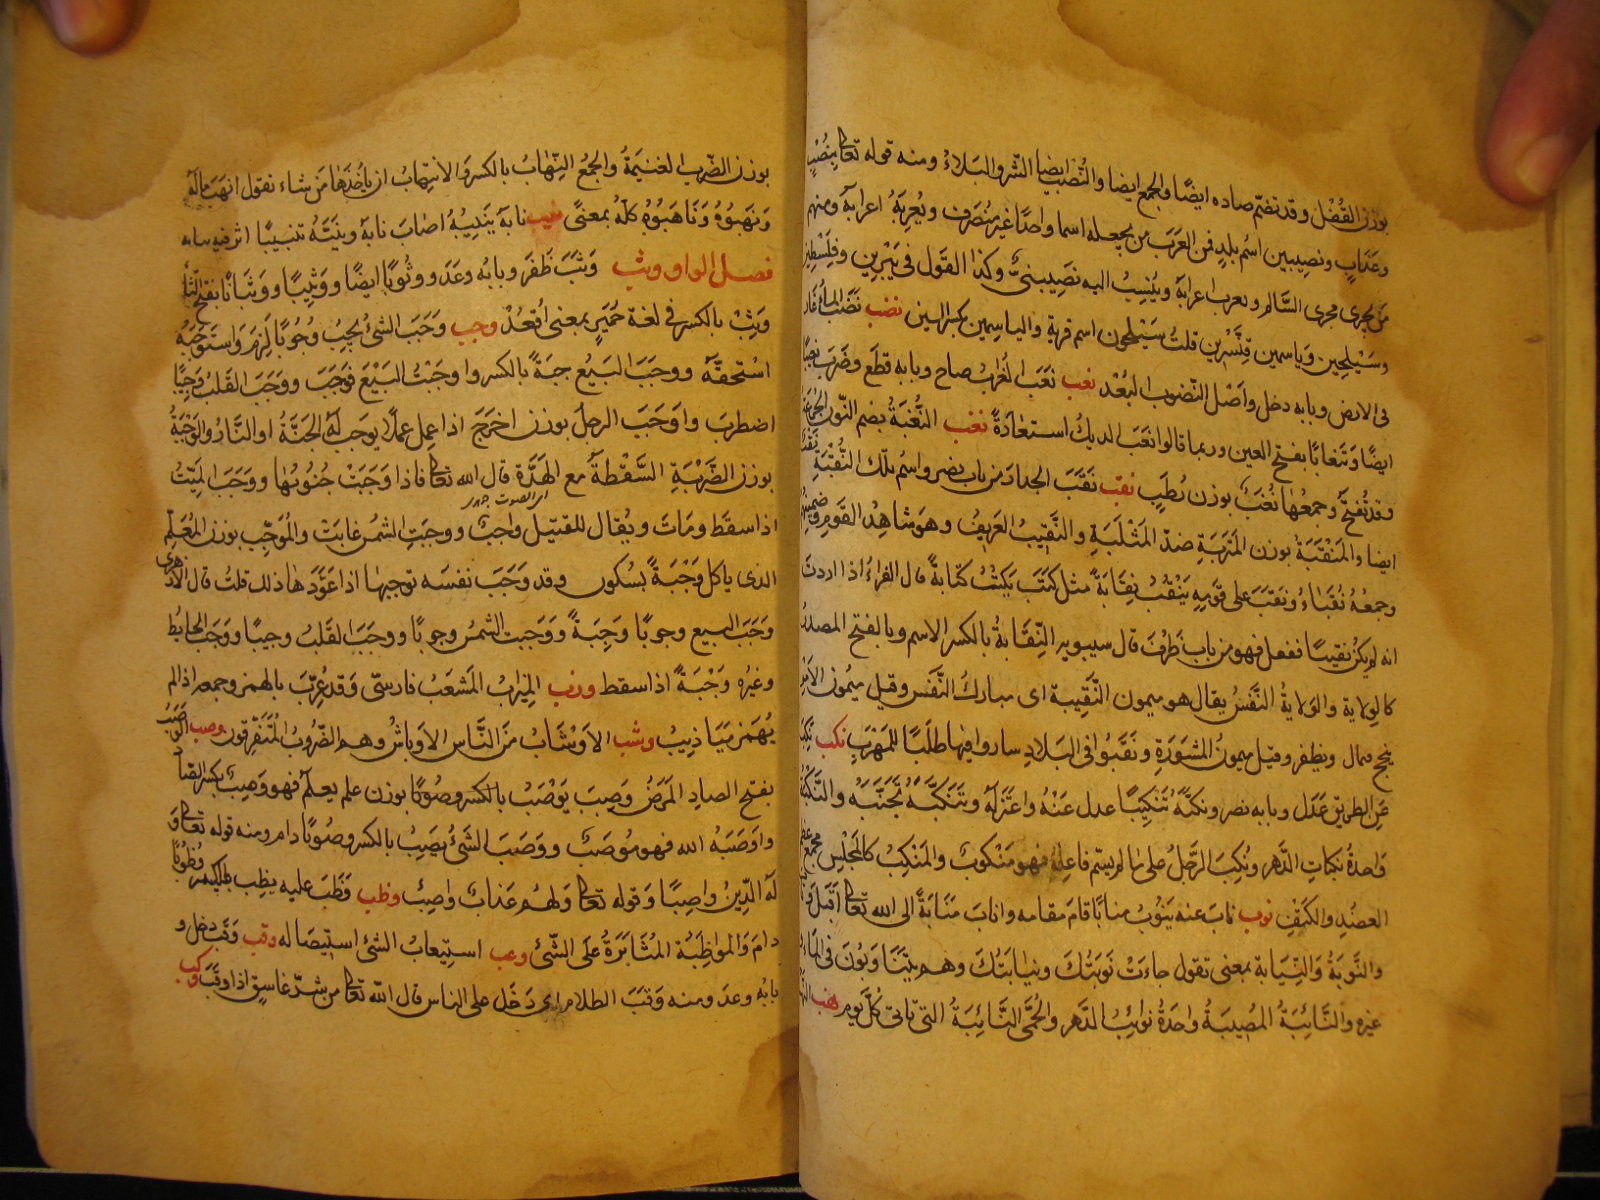 بوزن القُفْل وقد تضمّ صاده ايضًا والجمع ايضا والنُّصْبُ ايضا الشّر والبلاءُ ومنه قوله تعالى بنُصْبٍ
وعَذابٍ ونصيبين اسمُ بلدٍ فمن العَرَب من يجعله اسما واحدًا غير مُنْصَرف ويُعربهُ اعرابه ومنهم
مَن يجرى مجرى السَّالم ويعرب اعرابه ويُنسب اليه نصيبينىٌّ وكذا القول فى يَبْرين وفِلَسْطين
وسَيْلحين وياسمين وقِنَّسْرين قلتُ سَيْلحون اسم قرية والياسمين بكسر السين نضب نَضَبَ الماءُ غار
فى الارض وبابه دخل واَصْل النّضوب البُعْد نعب نَعَبَ الغُراب صاح وبابه قطع وضرب نعيبًا
ايضًا وتَنعابًا بفتح العين وربما قالوا نعَبَ الديك استعارةً نغب النُّغبَةُ بضم النّون الجُرعة
وقد تُفتح وجمعُها نُغَبٌ بوزن رُطَبٍ نقب نَقَبَ الجدارَ من باب نصر واسم تلك النَّقبة نَقْبٌ
ايضا والمَنْقَبَةُ بوزن المَتْرَبَة ضدّ المَثْلَبَةِ والنَّقيبُ العَريفُ وهو شاهِدُ القوم وضمينهم
وجمعُهُ نُقَباءُ ونقَبَ على قومِهِ يَنْقُبُ نِقابَةً مثل كَتَبَ يَكتُبُ كتابةً قال الفراءُ اذا اردتَ
انه لم يكن نقيبًا ففعل فهو من باب ظَرُفَ قال سيبويه النِّقابةُ بالكسر الاسم وبالفتح المصدرُ
كالوِلاية والوَلايةُ النَّفسُ يقال هو ميمون النَّقيبة اى مبارك النَّفس وقيل ميمون الامر
ينجح فيما ل ويظفر وقيل ميمون المشوَرَةِ ونَقَّبُوا فى البلادِ ساروا فيها طلَبًا للمَهْرَب نكب نَكَبَ
عَن الطريق عَدَل وبابه نصر ونَكَّبَ تَنكِيبًا عدل عَنْهُ واعتَزَلَهُ وتَنَكَّبَهُ تَجَنَّبَهُ والنَّكْبةُ
واحدةُ نَكَباتِ الدَّهر ونُكِبَ الرّجُل على ما لم يسمّ فاعله فهو مَنْكُوبٌ والمَنكِبُ كالمَجْلِس مجمع عظم
العضُد والكَتِف نوب نابَ عنه يَنُوبُ منابًا قامَ مقامه واناب منَابَةً الى الله تعالى اَقْبَلَ
والنَّوبةُ والنِّيابة بمعنى تقول جاءَتْ نَوبَتُكَ ونيابَتُكَ وهم يتَنَاوَبُونَ فى الماء
غيره والنَّائِبَةُ المُصيبةُ واحدةُ نَوائِبُ الدَّهر والحُمَّى النَّائِبَةُ التى تأتى كلَّ يوم نهب
بوزن الضَّرب الغنيمةُ والجمعُ النِّهابُ بالكسر والانتِهابُ ان يأخُذها مَن شاء تقول انهَبَ ماله
وَنَهَبُوهُ وَنَاهَبُوهُ كلّهُ بمعنىً نيب نابهُ يَنِيبُهُ اصابَ نابهُ ونَيَّبَهُ تنييبًا اثّر فيه بنابه
فصل الواو وثب وَثَبَ ظَفَرَ وبابُه وعَدَ ووثُوبًا ايضًا ووَثِيبًا ووَثَبَانًا بفتح الثّاء
وَثِبْ بالكسر فى لغة حِمْيَرٍ بمعنى اُقعُدْ وجب وَجَبَ الشّىُ يَجِبُ وُجُوبًا لَزِمَ واستَوْجَبَهُ
استحقّهُ ووجَبَ البيعُ جِبَةً بالكسر واوجَبْتُ البيْعَ فوَجَبَ ووَجَبَ القلبُ وَجِيبًا
اضطربَ واَوجَبَ الرجلُ بوزن اَخرَجَ اذا عمِل عملًا يوجبُ لهُ الجنّةُ او النّارُ والوَجْبَةُ
بوزن الضَّرْبَةِ السَّقْطةُ مع الهَدَّة قال الله تعالى فاذا وَجَبَتْ جُنُوبُها ووَجَبَ الميّتُ
اى الصوت
اذا سقَط وماتَ ويُقال للقتيل واجبٌ ووجبَتِ الشمسُ غابَتْ والمُوَجِّبُ بوزن المُعَلِّم
الذى ياكل وَجْبَةً بسُكون وقد وَجَبَ نفسَه توجيبًا اذا عَوَّدَها ذلك قلتُ قال الازهرى
وَجَبَ البيع وجوبًا وَجِبَةً ووَجبتِ الشمسُ وجوبًا ووجبَ القلبُ وجيبًا ووَجَبَ الحايطُ
وغيرُه وَجْبَةً اذا سقط وزب المِيزابُ المَثعَبُ فارسىّ وقد عُرِّبَ بالهمز وجمعه اذا لم
يُهمَز مَيازِيبُ وشب الاَوشَابُ منَ النّاس الاوباشُ وهم الضُّروبُ المُتَفَرِّقون وصب الوَصَبُ
بفتح الصادِ المَرَضُ وَصِبَ يَوْصَبُ بوزن علم يعلم فهو وَصِبٌ بكسر الصاد
واَوصَبَهُ الله فهو مُوصَبٌ ووَصَبَ الشّىُ يَصِبُ بالكسر وصُوبًا دام ومنه قوله تعالى وَ
لَهُ الدِّينُ واصِبًا وقوله تعالى وَلهُم عَذابٌ واصِبٌ وظب وَظَبَ عليه يَظِب بالكسر وُظُوبًا
دامَ والمواظَبَة المُثابَرَةُ علَى الشّئ وعب استِيعابُ الشئ استيصَاله وقب وَقَبَ دخل و
بابُه وعد ومنه وَقَبَ الظلام اى دَخَل على الناس قال الله تعالى من شرّ غاسقٍ اذا وَقَبَ وكب